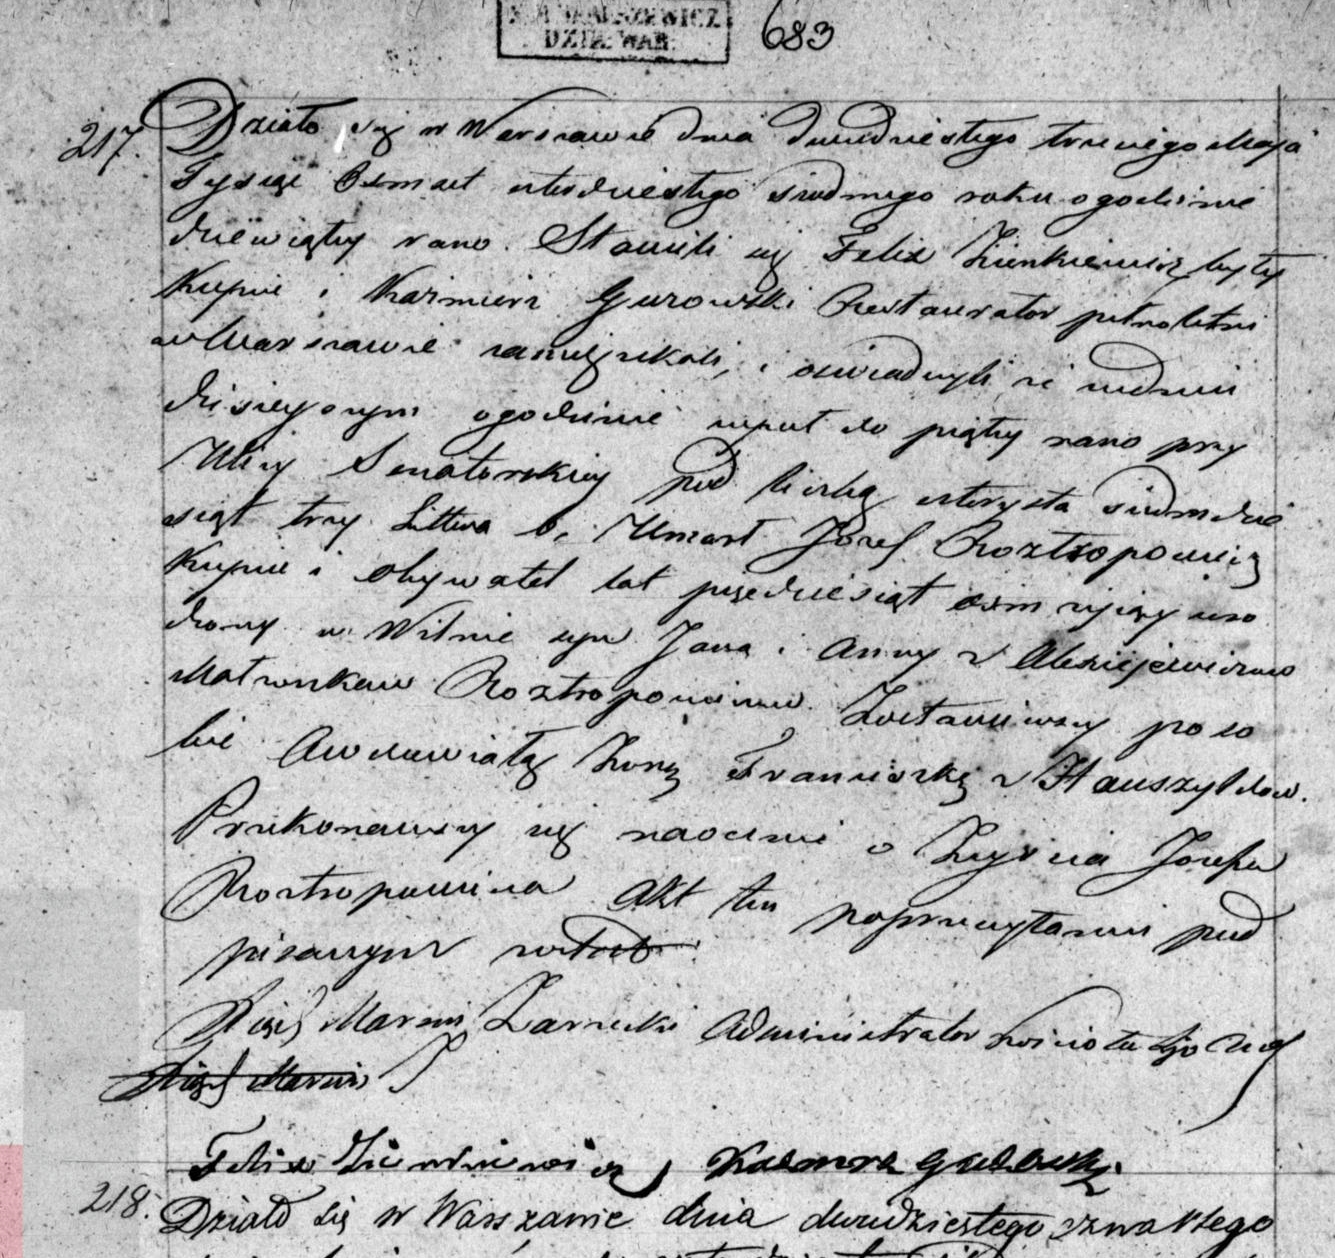 683
217. Działo się w Warszawie dnia dwudziestego trzeciego Maja
Tysiąc Osmset czterdziestego siodmego roku o godzinie
dziewiątey rano. Stawili się Felix Zienkiewicz były
Kupiec i Kazimierz Gurowski Restaurator pełnoletni
w Warszawie zamięszkali, i oświadczyli że w dniu
dzisieyszym o godzinie wpół do piątey rano przy
Ulicy Senatorskiey pod liczbą czterysta siedmdzie
siąt trzy Littera b, Umarł Jozef Roztropowicz
Kupiec i obywatel lat pięcdziesiąt osm żyjący uro
dzony w Wilnie syn Jana i Anny z
Małżonkow Roztropowiczow. Zostawiwszy po so
bie Owdowiałą Żonę Franciszkę z Hauszyldow.
Przekonawszy się naocznie o Zeyściu Jozefa
Roztropowicza Akt ten po przeczytaniu pod
pisanym został
Xiądz Marcin Administrator Kościoła
Xiądz Marcin
Felix Zienkiewicz, Kazimierz Gurowski
218. Działo się w Warszawie dnia dwudziestego czwartego